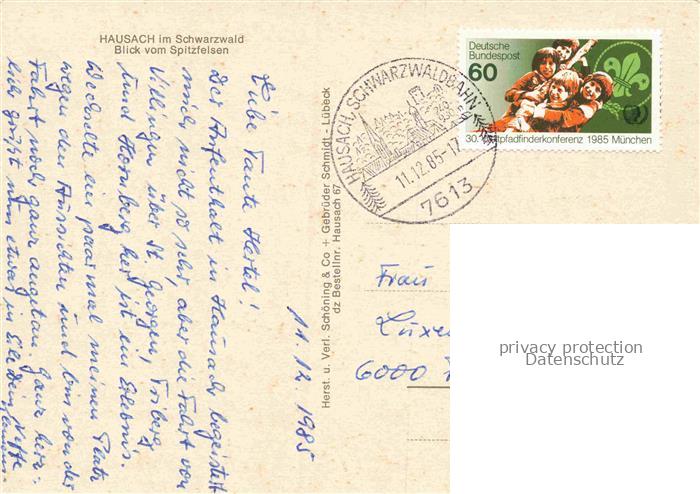 HAUSACH im Schwarzwald
Blick vom Spitzfelsen
11.12.1985
Liebe Tante Hertel!
Der Aufenthalt in Hausach begeistert
mich nicht so sehr, aber die Fahrt von
Villingen über St. Georgen, Triberg
und Hornberg her ist ein Erlebnis.
Wechselte ein paarmal meinen Platz
wegen der Aussichten und bin von der
Fahrt noch ganz angetan. Ganz herz-
lich grüßt nun etwas in Eile Dein
Neffe
Herst. u. Verl. Schöning & Co + Gebrüder Schmidt - Lübeck
dz Bestellnr. Hausach 67
HAUSACH, SCHWARZWALDBAHN
11.12.85-17
7613
Deutsche
Bundespost
60
30. Weltpfadfinderkonferenz 1985 München
Frau
Luxe
6000
privacy protection
Datenschutz